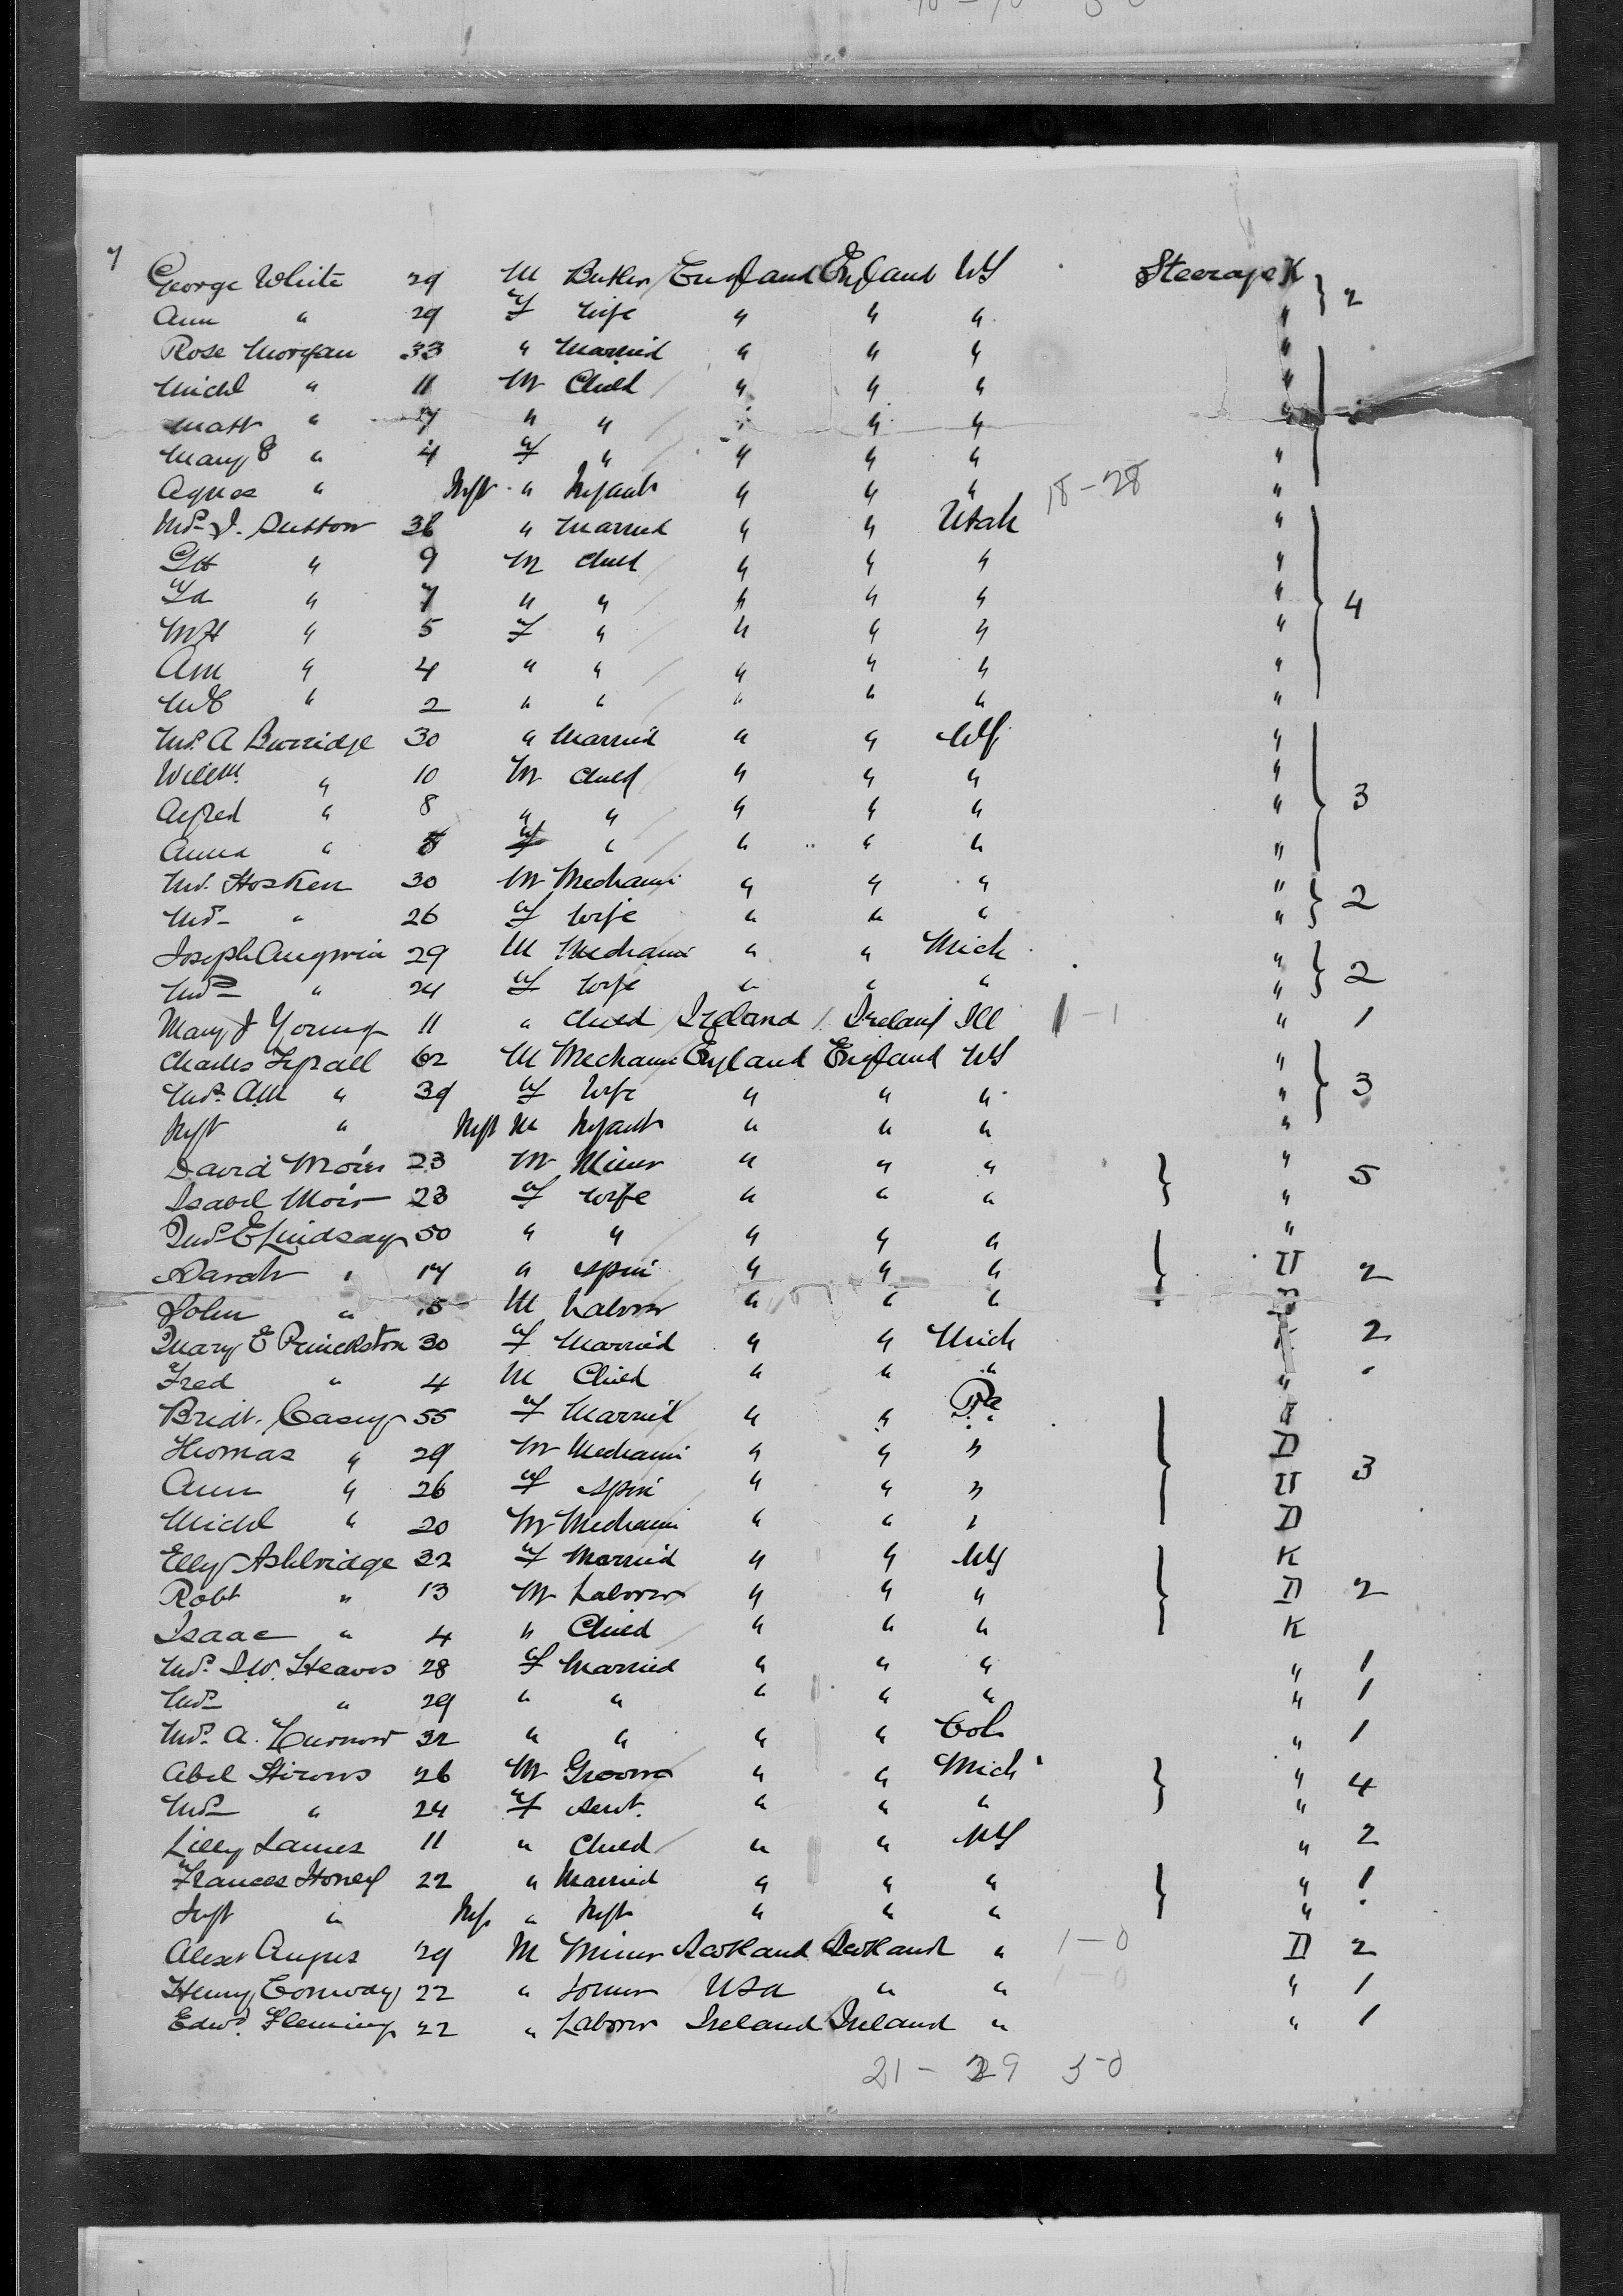 George White 29 M Butler England England US Steerage K } 2
Ann " 29 F Wife " " " "
Rose Morgan 33 " Married " " " "
Michl " 11 M Child " " " "
Matt " 7 " " " " " "
Mary E " 4 F " " " " "
Agnes " Inft " Infant " " " 18-28 "
Mrs J. Sutton 36 " Married " " Utah "
GH " 9 M Child " " " "
" 7 " " " " " " } 4
MH " 5 F " " " " "
Ann " 4 " " " " " "
" 2 " " " " " "
Mrs A Burridge 30 " Married " " NY "
Willm " 10 M Child " " " "
Alfred " 8 " " " " " " } 3
Anna " F " " " " "
Mr. Hosken 30 M Mechanic " " " " } 2
Mrs " 26 F Wife " " " "
Joseph Angwin 29 M Mechanic " " Mich "
Mrs " 24 F Wife " " " " } 2
Mary J Young 11 " Child Ireland Ireland Ill 1-1 " 1
Charles 62 M Mechanic England England US "
Mrs AM " 39 F Wife " " " " } 3
Inft " Inft M Infant " " " "
David Moir 23 M Miner " " " } " 5
Isabel Moir 23 F Wife " " " "
Mrs E Lindsay 50 " " " " " "
Sarah " 17 " Spin " " " } II 2
John " 15 M Labour " " "
Mary E 30 F Married " " Mich 2
Fred " 4 M Child " " " "
Bridt. Casey 55 F Married " " Pa
Thomas " 29 M Mechanic " " " D
Ann " 26 F Spin " " " } II 3
Michl " 20 M Mechanic " " " D
Elly Ashbridge 32 F Married " " NY K
Robt " 13 M Laborer " " " } D 2
Isaac " 4 " Child " " " K
Mrs J.W. Heaves 28 F Married " " " " 1
Mrs " 29 " " " " " " 1
Mrs A. Curnow 32 " " " " Col " 1
Abel 26 M Groom " " Mich } " 4
Mrs " 24 F Servt. " " " "
Lilly James 11 " Child " " NY " 2
Frances Honey 22 " Married " " " } " 1
Inft " Inf. " Inft " " " "
Alexr Angus 29 M Miner Scotland Scotland " 1-0 D 2
Henry Conway 22 " Joiner USA " " 1-0 " 1
Edwd. Fleming 22 " Laborer Ireland Ireland " " 1
21 - 29 3-0